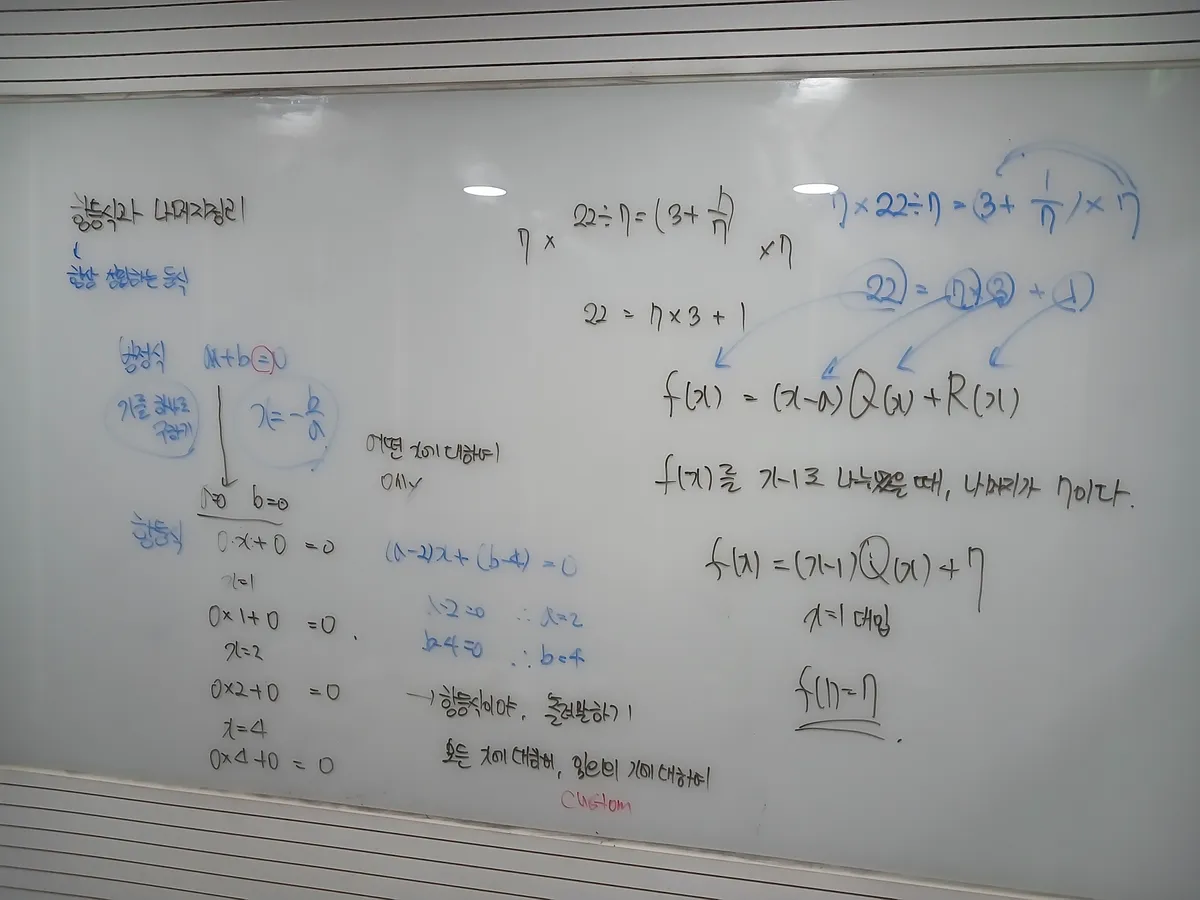 항등식과 나머지정리
항상 성립하는 등식
방정식 ax+b=0
x를 하나로 구하기
x=-b/a
a=0 b=0
항등식 0·x+0=0
x=1
0×1+0=0.
x=2
0×2+0=0
x=4
0×4+0=0
어떤 x에 대하여
only
(a-2)x+(b-4)=0
a-2=0 ∴a=2
b-4=0 ∴b=4
→항등식이야, 돌려말하기
모든 x에 대하여, 임의의 x에 대하여
custom
7× 22÷7=(3+1/7) ×7
22=7×3+1
7×22÷7=(3+1/7)×7
22=7×3+1
f(x)=(x-a)Q(x)+R(x)
f(x)를 x-1로 나누었을 때, 나머지가 7이다.
f(x)=(x-1)Q(x)+7
x=1 대입
f(1)=7.